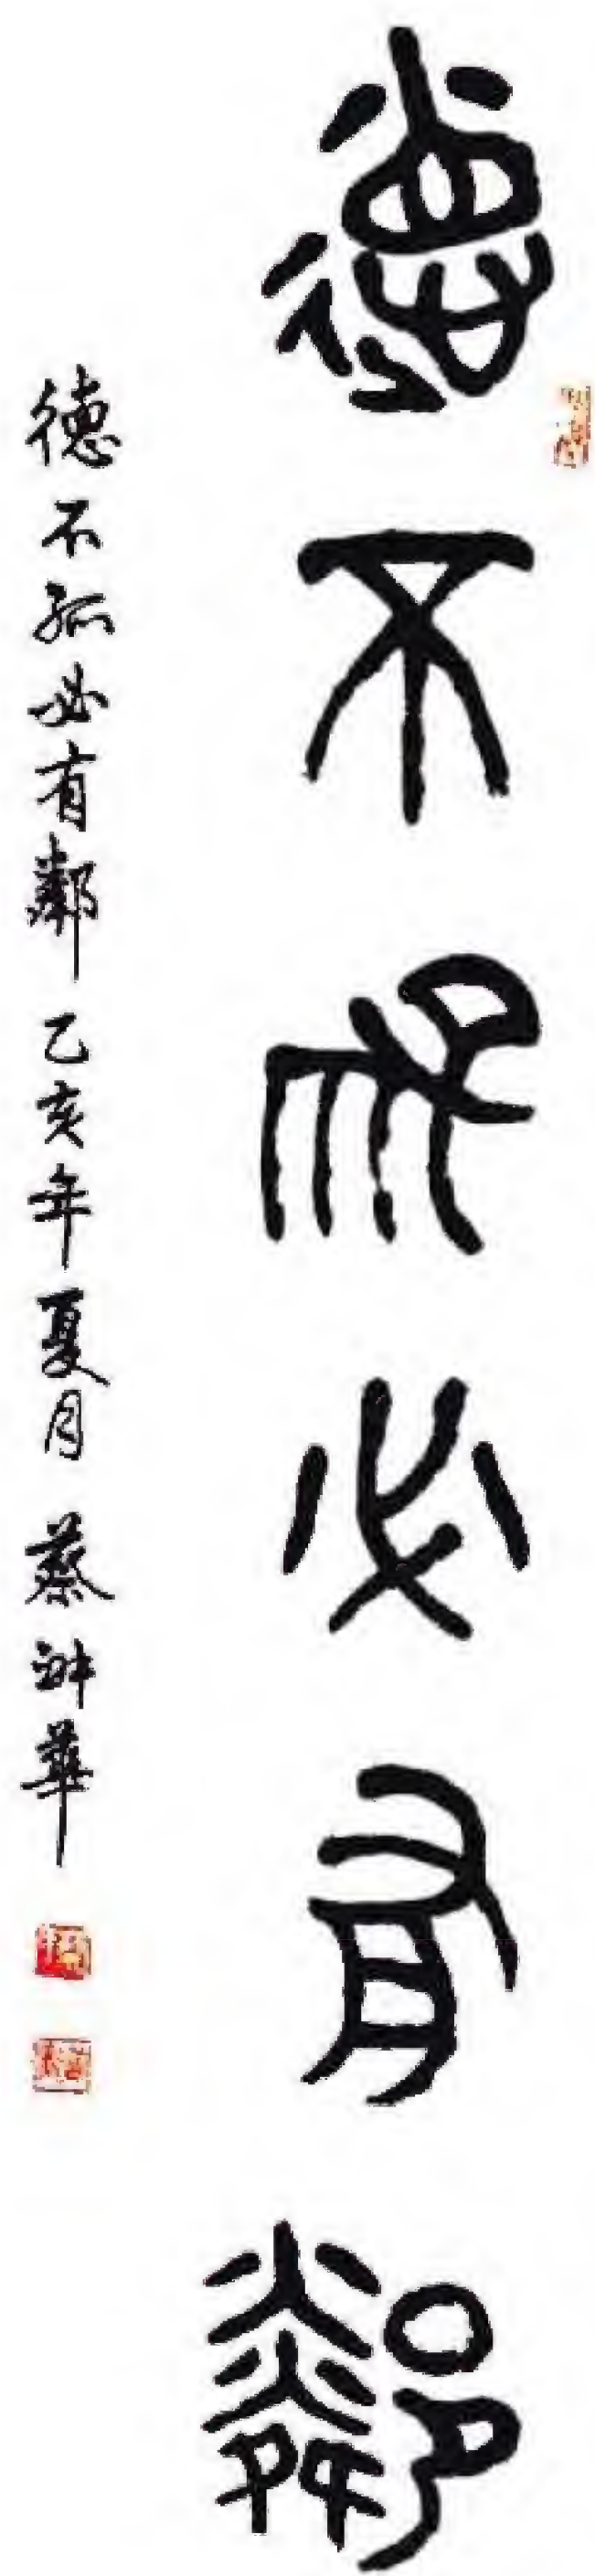 德不孤必有鄰
德不孤必有鄰 乙亥年夏月 蔡訓華